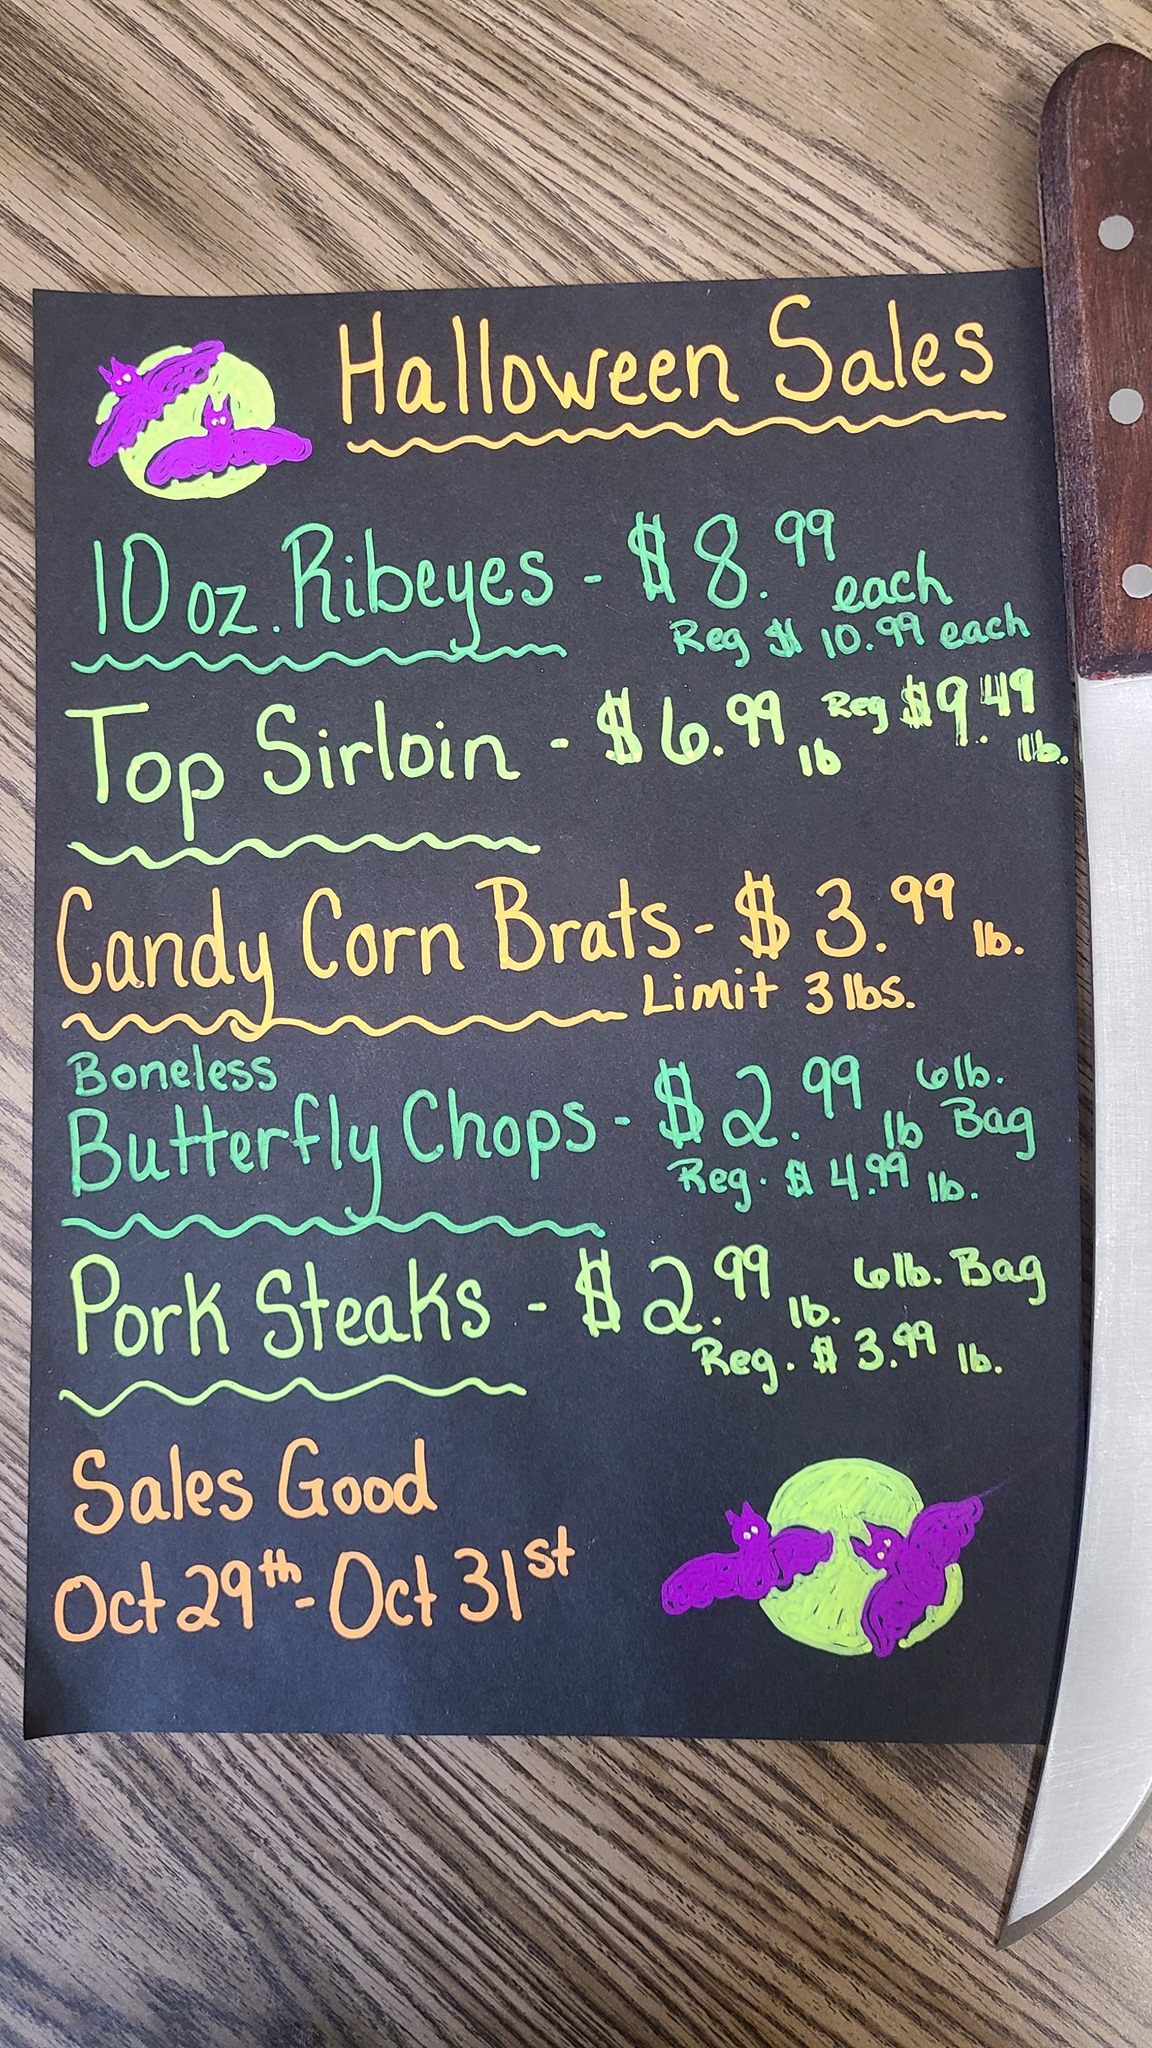 Halloween Sales
10 oz. Ribeyes - $8.99 each
Reg $10.99 each
Top Sirloin - $6.99 lb Reg $9.49 lb.
Candy Corn Brats - $3.99 lb.
Limit 3 lbs.
Boneless
Butterfly Chops - $2.99 lb 6 lb. Bag
Reg. $4.99 lb.
Pork Steaks - $2.99 lb. 6 lb. Bag
Reg. $3.99 lb.
Sales Good
Oct 29th - Oct 31st